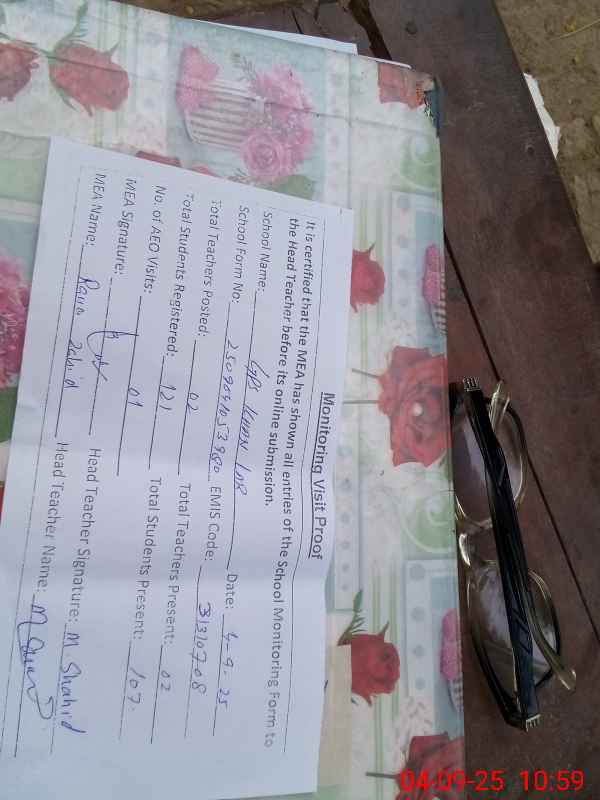 Monitoring Visit Proof
It is certified that the MEA has shown all entries of the School Monitoring Form to
the Head Teacher before its online submission.
School Name: GPS Date: 4-9-25
School Form No: EMIS Code: 31320708
Total Teachers Posted: 02 Total Teachers Present: 02
Total Students Registered: 121 Total Students Present: 107.
No. of AEO Visits: 01
MEA Signature: Head Teacher Signature: M Shahid
MEA Name: Zahid Head Teacher Name: M
04-09-25 10:59